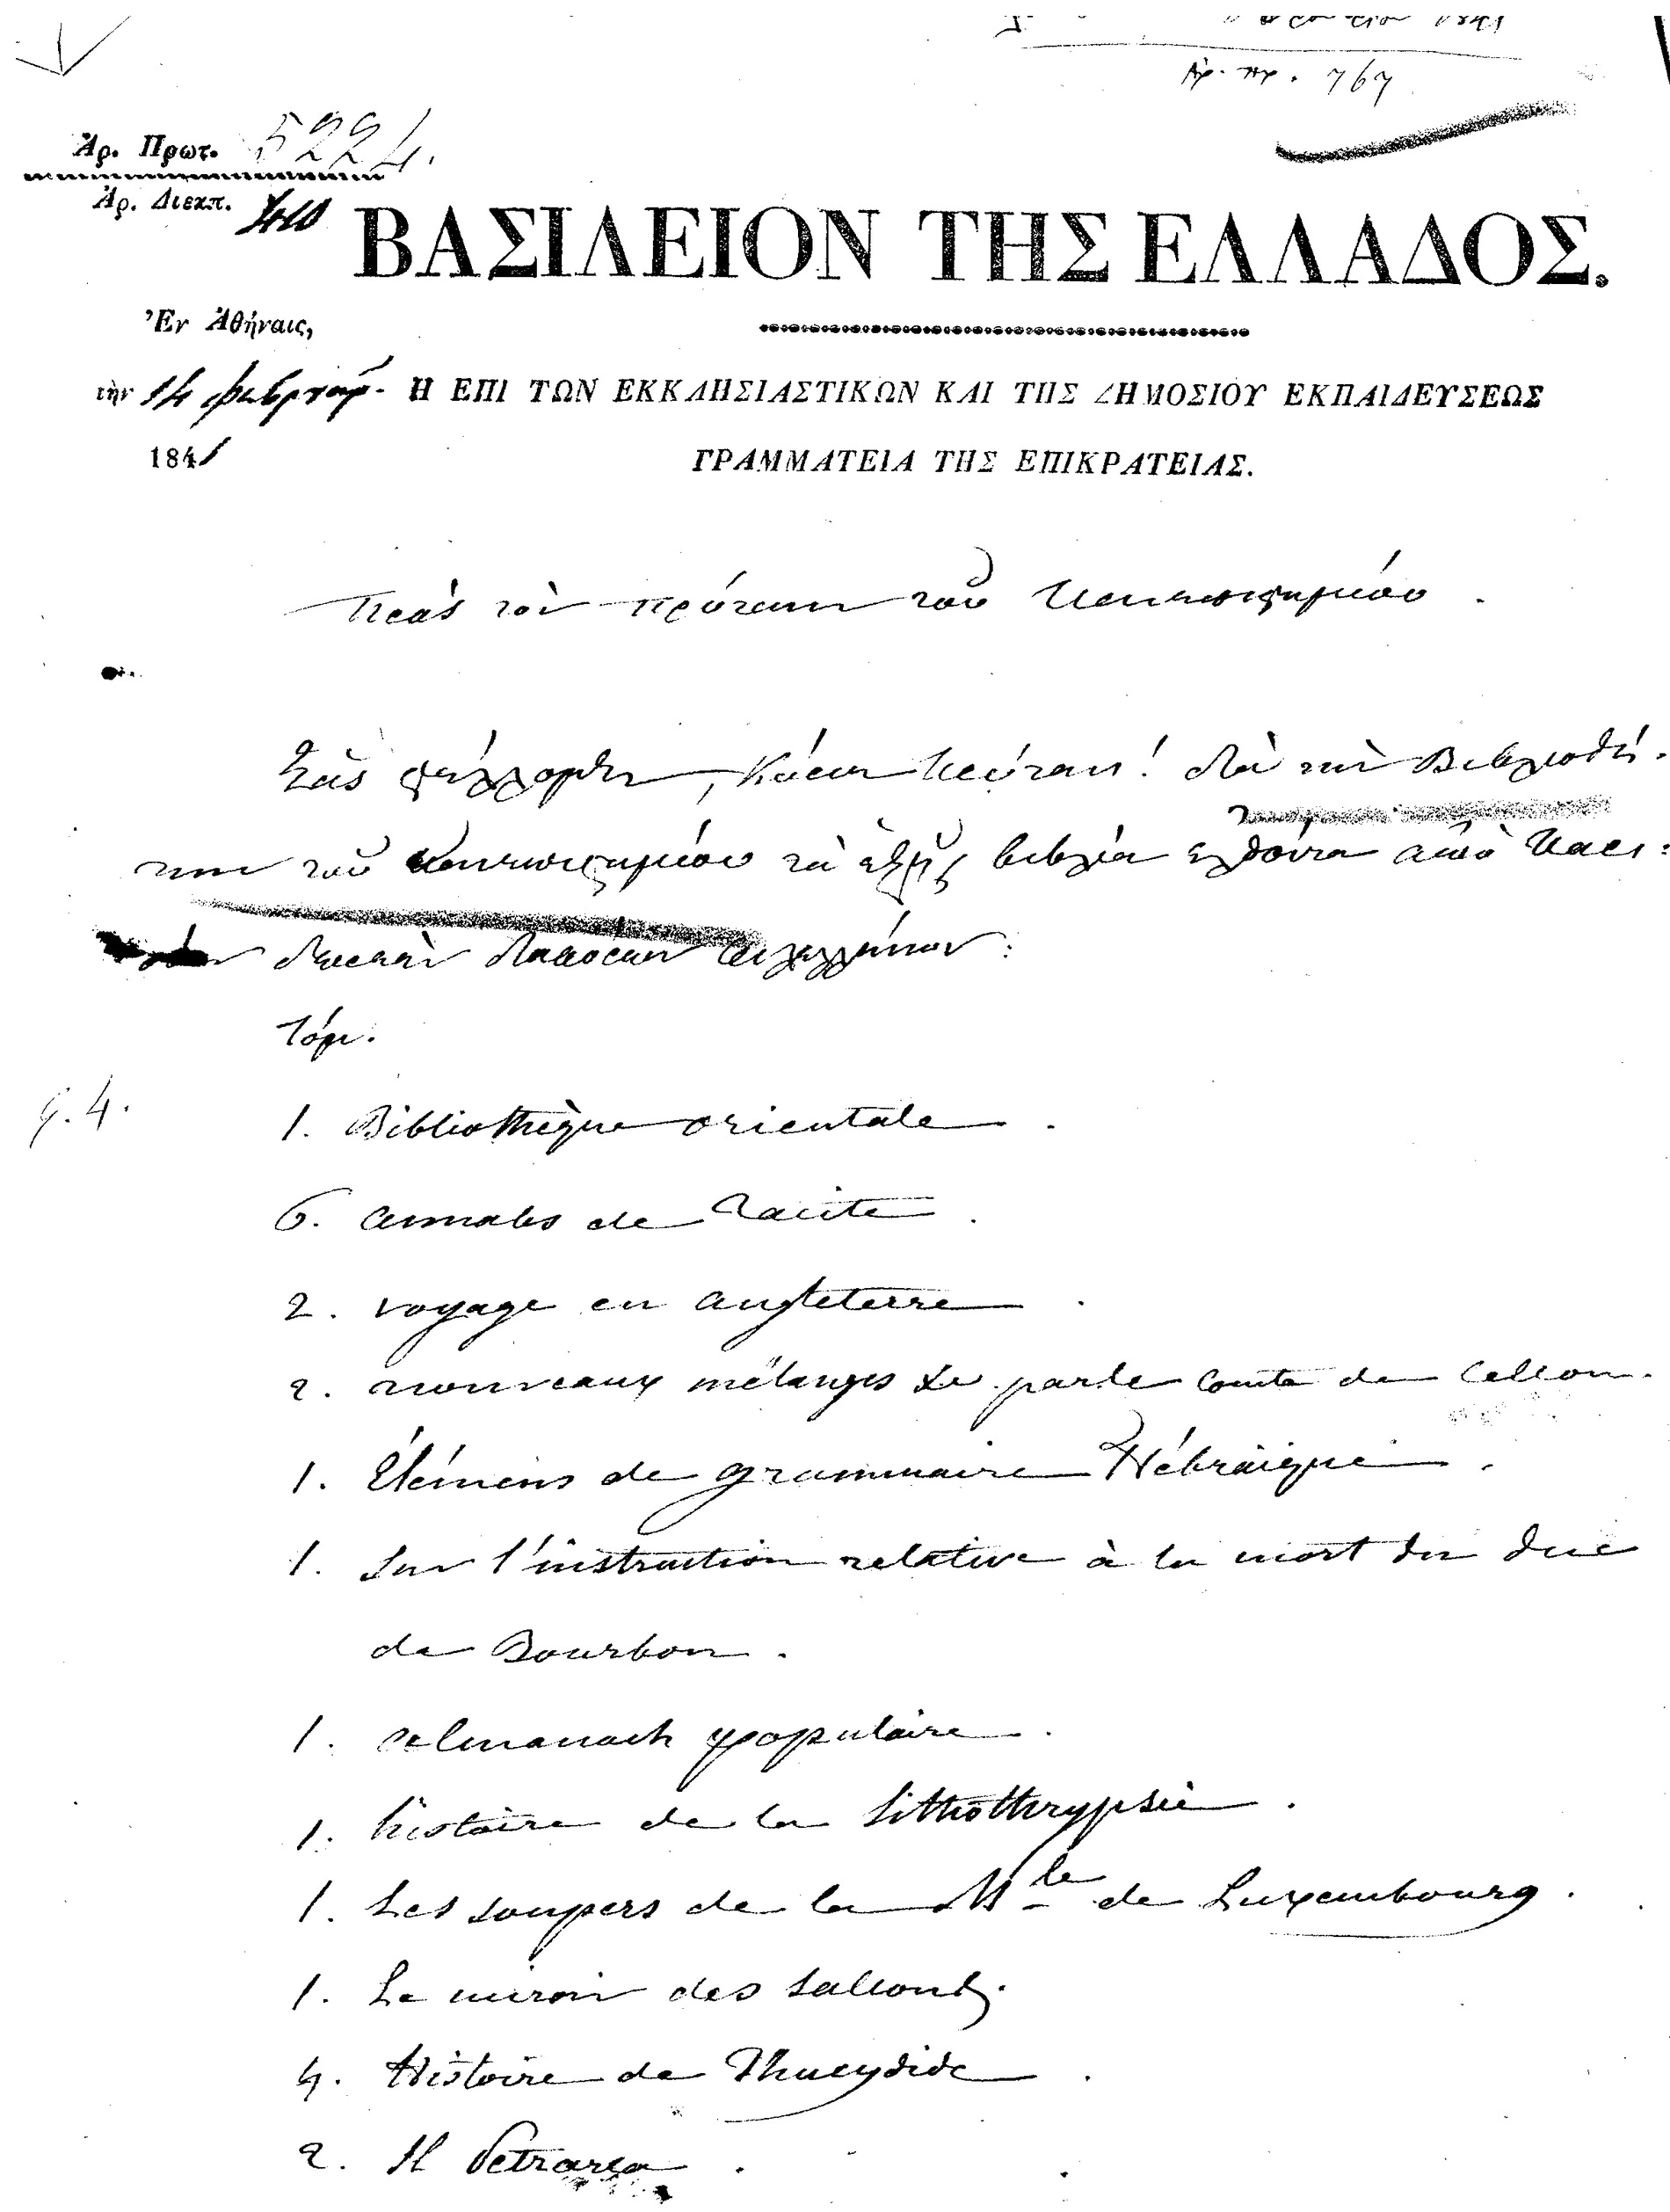 1841
Ἀρ. πρ. 767
Ἀρ. Πρωτ. 5224.
Ἀρ. Διεκπ.
ΒΑΣΙΛΕΙΟΝ ΤΗΣ ΕΛΛΑΔΟΣ.
Ἐν Ἀθήναις,
τὴν 14 φεβρουαρ. Η ΕΠΙ ΤΩΝ ΕΚΚΛΗΣΙΑΣΤΙΚΩΝ ΚΑΙ ΤΗΣ ΔΗΜΟΣΙΟΥ ΕΚΠΑΙΔΕΥΣΕΩΣ
1841 ΓΡΑΜΜΑΤΕΙΑ ΤΗΣ ΕΠΙΚΡΑΤΕΙΑΣ.
Πρὸς τὸν πρύτανιν τοῦ Πανεπιστημίου.
Σᾶς στέλλομεν, Κύριε Πρύτανι! διὰ τὴν Βιβλιοθή-
κην τοῦ Πανεπιστημίου τὰ ἑξῆς βιβλία ἐλθόντα ἀπὸ Παρι:
δωρεὰν διαφόρων φιλελλήνων:
Τόμ.
4.
1. Bibliothèque orientale.
6. annales de Tacite.
2. voyage en angleterre.
2. nouveaux mélanges par le Comte de Cellon.
1. Élémens de grammaire Hébraïque.
1. Sur l'instruction relative à la mort du duc
de Bourbon.
1. almanach populaire.
1. histoire de la Lithothrypsie.
1. Les soupers de la Mle de Luxembourg.
1. Le miroir des sallons.
4. Histoire de Thucydide.
2. Il Petrarca.